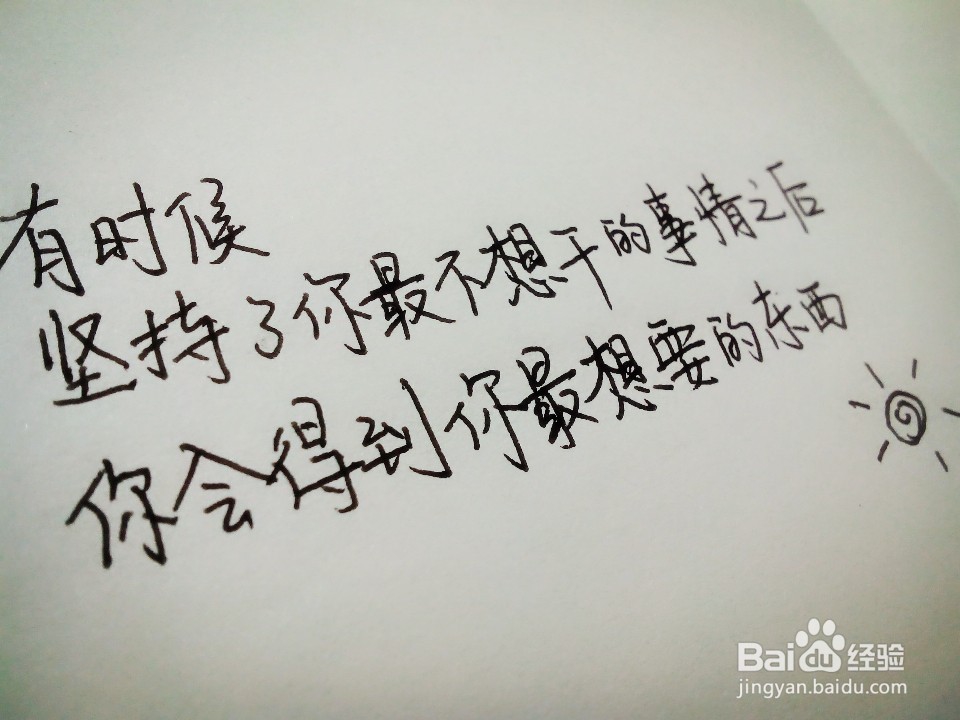 有时候
坚持了你最不想干的事情之后
你会得到你最想要的东西
Baidu经验
jingyan.baidu.com